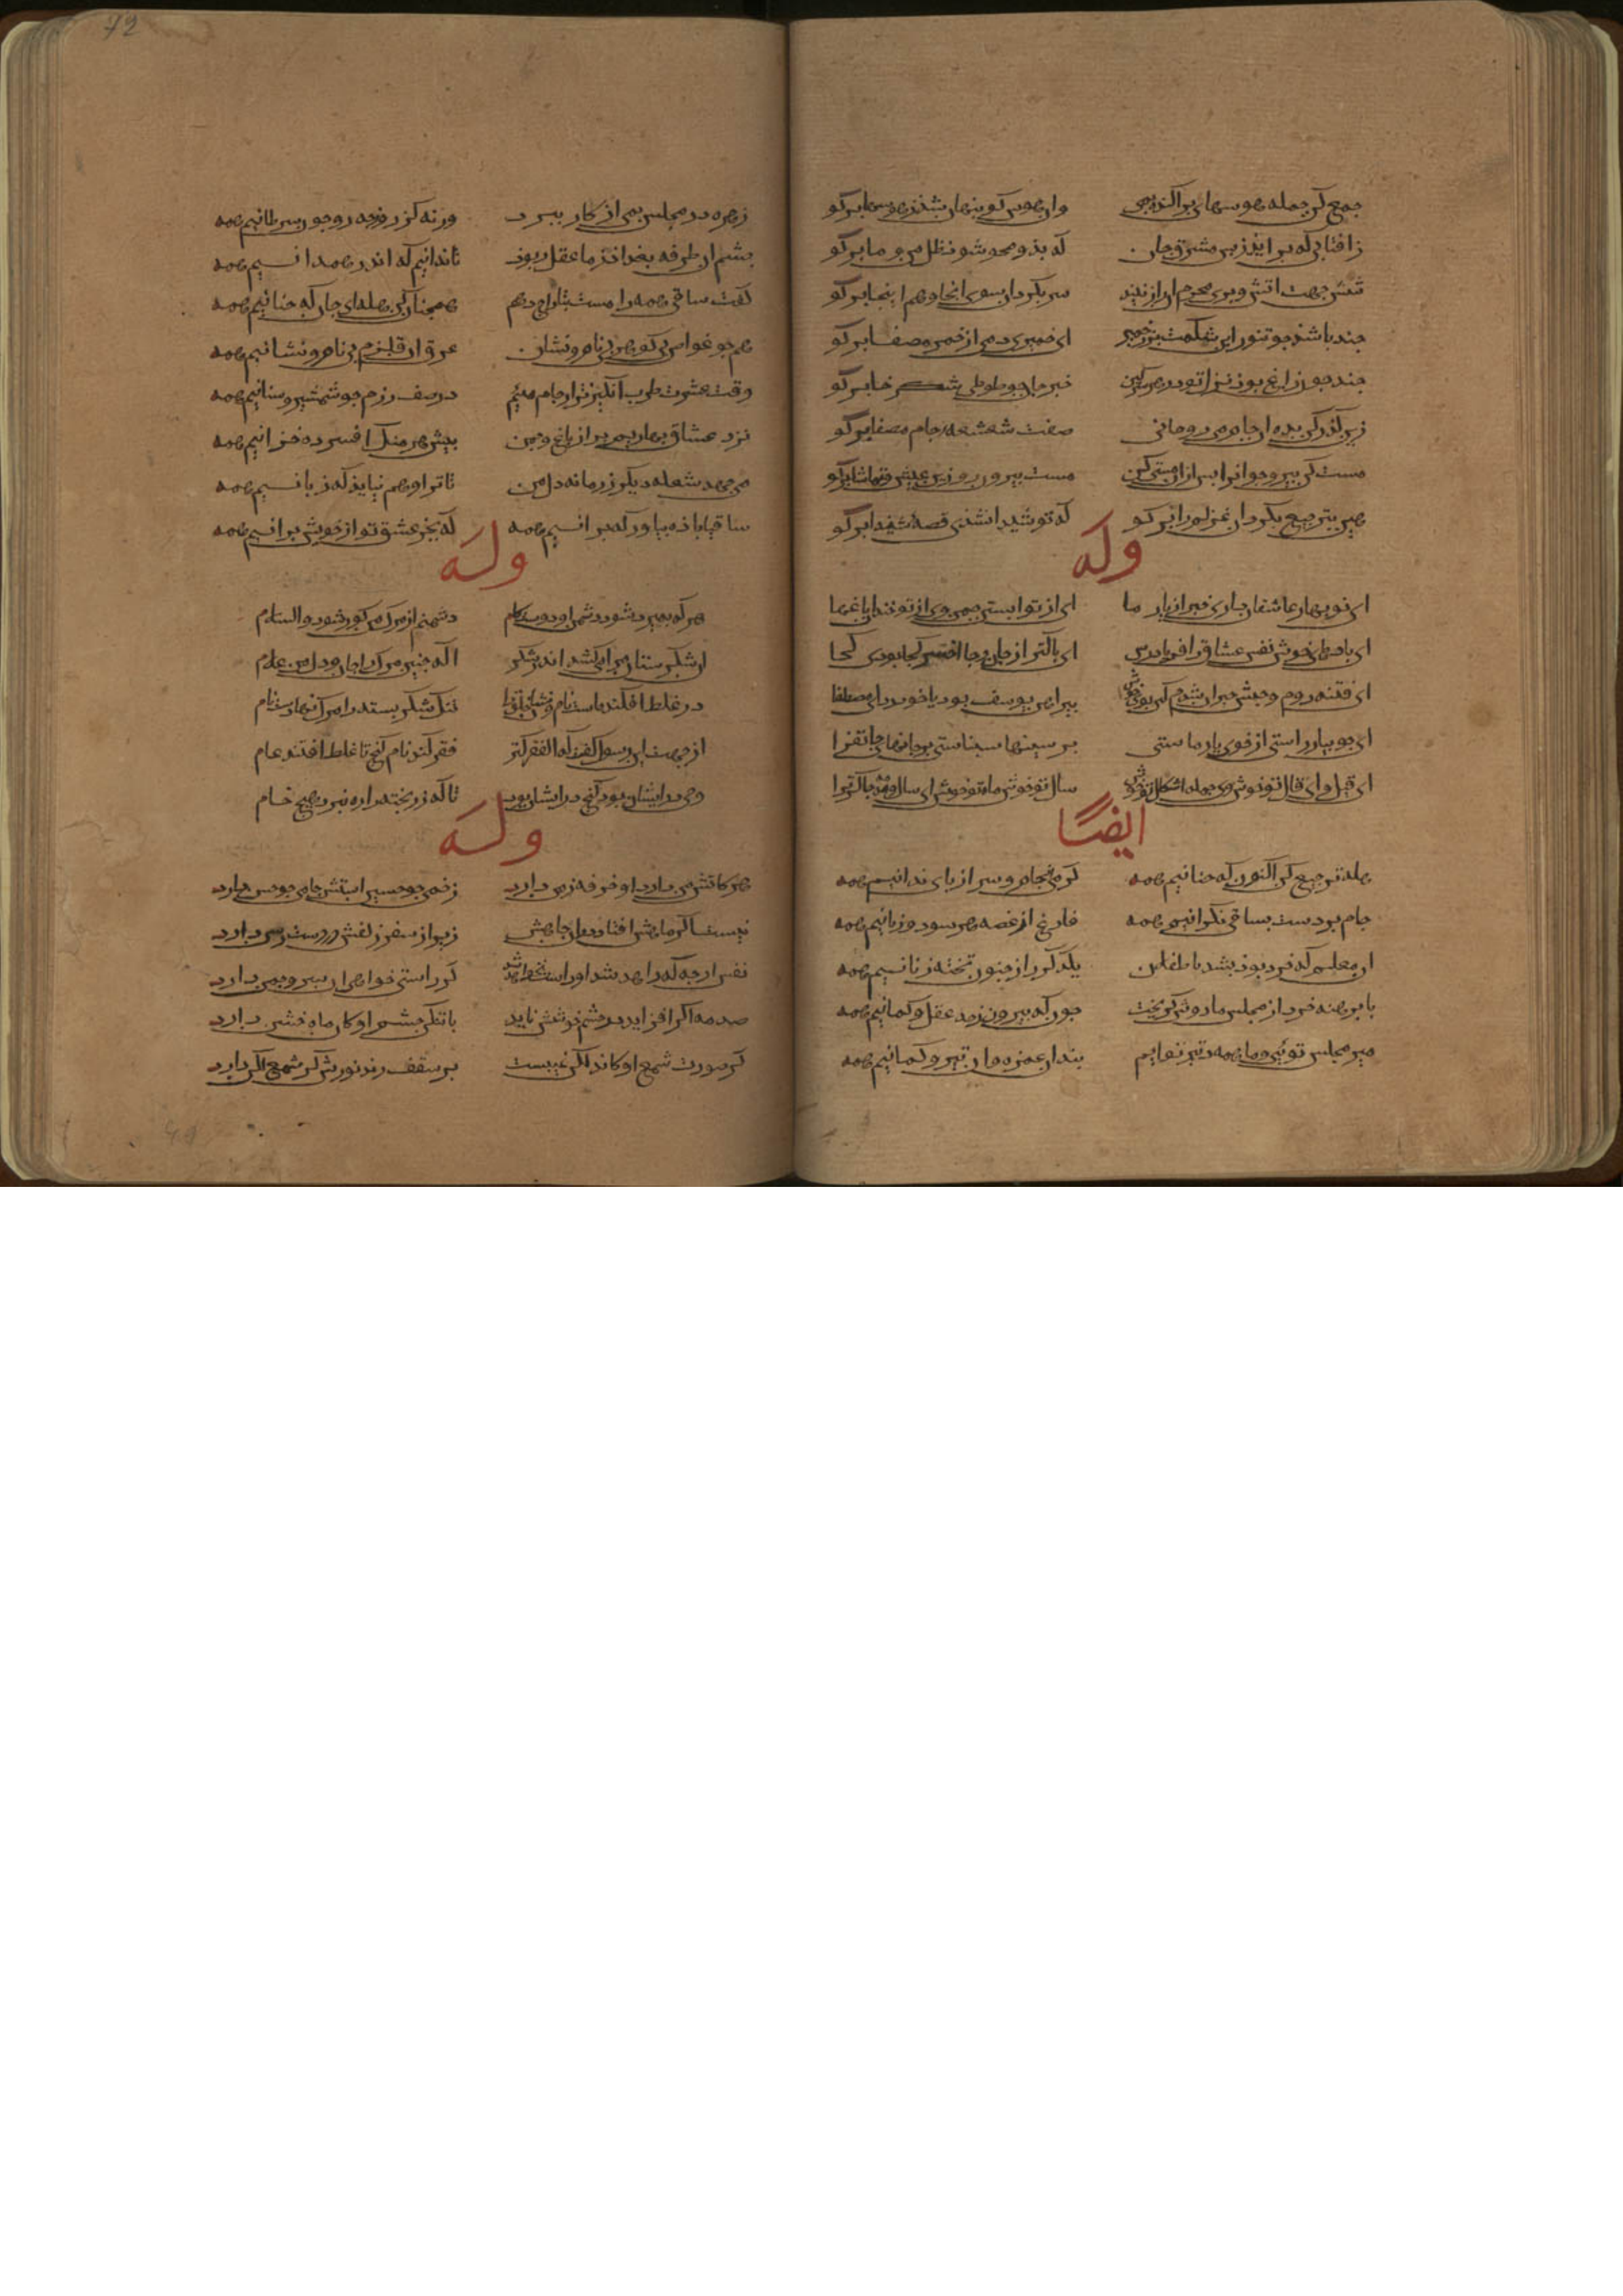 جمع کن جمله هوسهای پراکنده بمی
وان هوس کو بنهان شذز هوسها برکو
زافتابی که برایذ زبس مشرق جان
که بذو محو شود ظل من و ما برکو
شش جهت اتش و بری محرم ان
سر بکردان سوی انجا و هم اینجا برکو
جند باشذ جو تنور این شکمت بر ز خمیر
ای خمیری دمی از خمر مصفا برکو
جند جون زاغ بوذ نول تو در هر سرکین
خبر جان جو طوطی شکر خا برکو
زین کذر کن بده ان جام می روحانی
صفت شعشعه جام مصفا برکو
مست کن بیر و جوانرا بس ازان مستی کن
مست بیرون رو زین عیش و تماشا برکو
هین بترجیع بکردان غزلم را برکو
که تو شیدا شذی قصه شیدا برکو
وله
ای نوبهار عاشقان داری خبر از یار ما
ای از تو ابستن جمن وی از تو خندان باغها
ای بادهای خوش نفس عشاق را فریاد رس
ای باکتر از جان و جا اخر کجا بودی کجا
ای فتنه روم و حبش حیران شدم کین بوی خوش
بیراهن یوسف بود یا خود ردای مصطفا
ای جویبار راستی از جوی یار ماستی
بر سینها سیناستی بر جانها جانفزا
ای قیل و ای قال تو خوش وی جمله اشکال تو خوش
سال تو خوش ماه تو خوش ای سال و مه جاکر ترا
ایضًا
هله ترجیع کن اکنون که جنانیم همه
که می از جام و سر از بای ندانیم همه
جام بر دست بساقی نکرانیم همه
فارغ از غصه هر سود و زیانیم همه
ان معلم که خرد بوذ بشد ما طفلان
یکدکر را ز جنون تخته زنانیم همه
با برهنه خرد از مجلس ما دوش کریخت
جونکه بیرون زحد عقل و کمانیم همه
میر مجلس تویی و ما همه در تیر توایم
بند ان غمزه و ان تیر و کمانیم همه
زهره در مجلس مه مان بمی از کار ببرد
ورنه کژ رو زجه رو جون سرطانیم همه
جشم ان طرفه بغداد ز ما عقل ربود
تا ندانیم که اندر همدانیم همه
کفت ساقی همه را مست بتاراج دهم
همجنان کن هله ای جان که جنانیم همه
همجو غواص بی کوهر بی نام و نشان
غرق ان قلزم بی نام و نشانیم همه
وقت عشرت طرب انکیزتر از جام میئیم
در صف رزم جو شمشیر و سنانیم همه
نزد عشاق بهاریم بر از باغ و جمن
بیش هر منکر افسرده خزانیم همه
می جهد شعله دیکر ز زبانه دل من
تا ترا وهم نیایذ که زبانیم همه
ساقیا باذه بیاور که برانیم همه
که بجز عشق تو از خویش برانیم همه
وله
هر که بمیرد شود دشمن او دوستکام
دشمنم از مرک من کور شود والسلام
ان شکرستان مرا میکشد اندر شکر
ای که جنین مرک را جان و دل من غلام
در غلط افکنده است نام و نشان خلق را
تنک شکر بسته را مرک نهادست نام
از جهت این رسول کفت که الفقر کنز
فقر کند نام کنج تا غلط افتند عام
وحی در ایشان بود کنج در ایشان بود
تا که زر بخته را ره نبرد هیچ خام
وله
هر کاتش من دارد او خرقه ز من دارد
زخمی جو حسین استش جامی جو حسن دارد
نیست اکر ماهش افتاد در ان جاهش
زیرا ز سفر زلفش در دست رسن دارد
نفس ارجه که زاهد شد او راست نخواهد شد
کر راستی خواهی ان سرو جمن دارد
صد مه اکر افزاید در جشم خوشش ناید
با تنکی جشم او کان ماه ختن دارد
کر صورت شمع او کاندر لکن غیبست
بر سقف زند نورش کر شمع لکن دارد